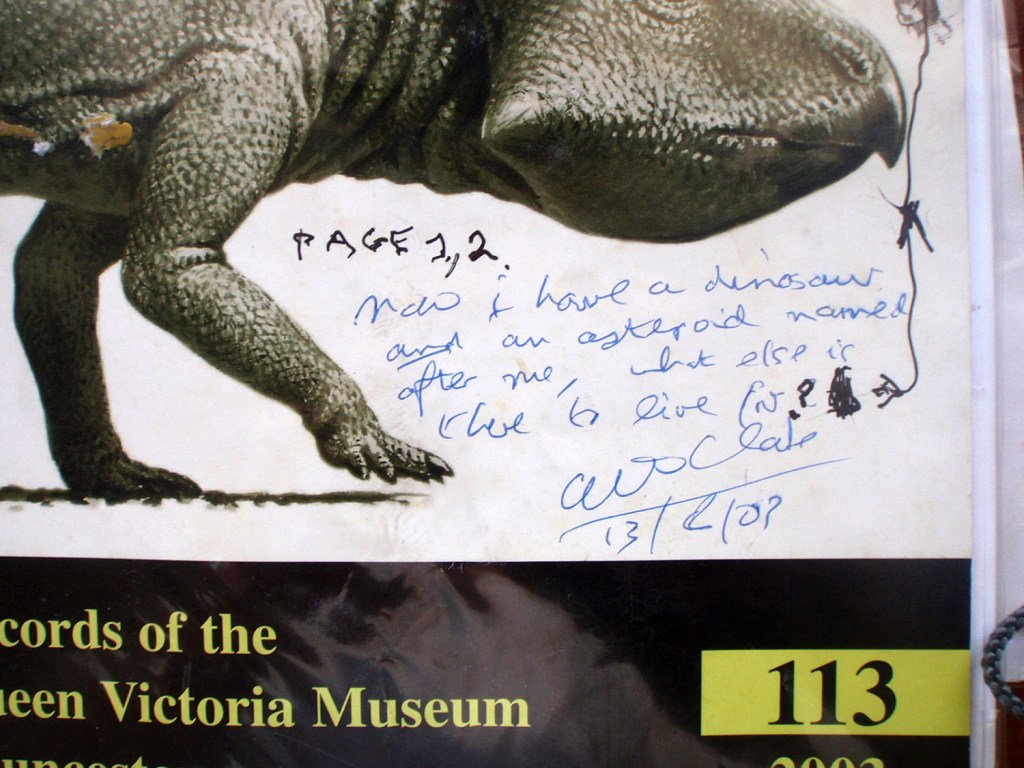 PAGE 1,2.
Now i have a dinosaur
and an asteroid named
after me, what else is
there to live for?
Clarke
cords of the
ueen Victoria Museum
113
2003